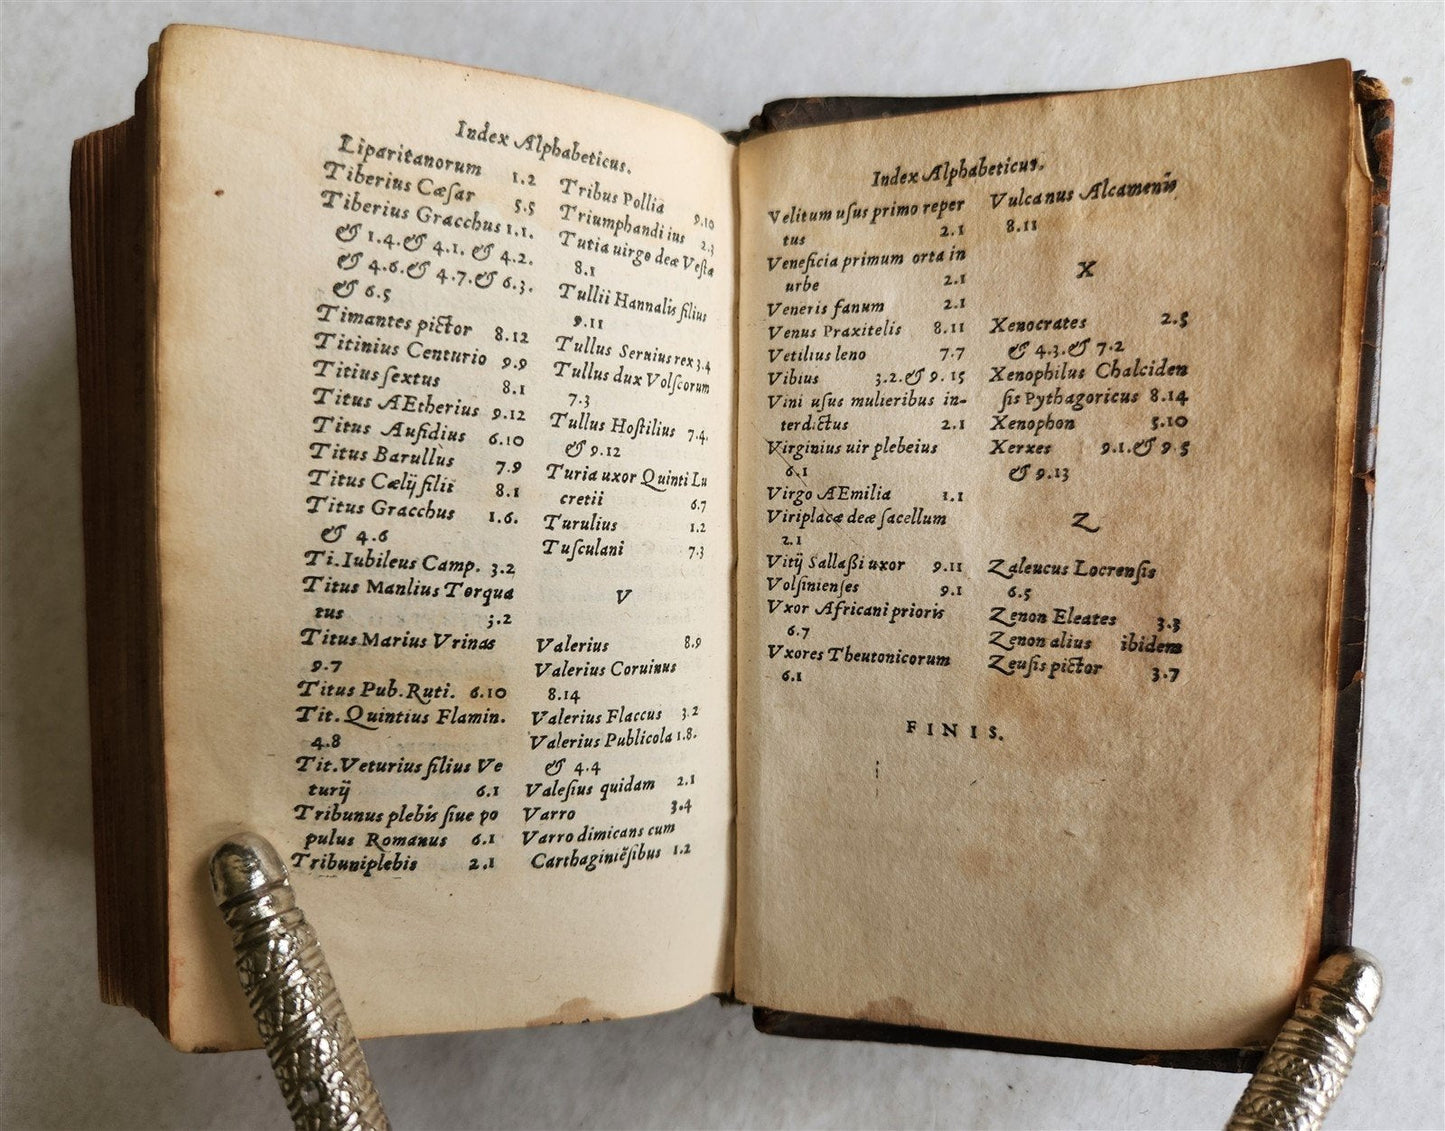 Index Alphabeticus.
Liparitanorum 1.2
Tiberius Cæſar 5.5
Tiberius Gracchus 1.1.
& 1.4.& 4.1. & 4.2.
& 4.6.& 4.7.& 6.3.
& 6.5
Timantes pictor 8.12
Titinius Centurio 9.9
Titius ſextus 8.1
Titus AEtherius 9.12
Titus Aufidius 6.10
Titus Barullus 7.9
Titus Cælij filii 8.1
Titus Gracchus 1.6.
& 4.6
Ti.Iubileus Camp. 3.2
Titus Manlius Torqua
tus 3.2
Titus Marius Vrinas
9.7
Titus Pub.Ruti. 6.10
Tit.Quintius Flamin.
4.8
Tit.Veturius filius Ve
turij 6.1
Tribunus plebis ſiue po
pulus Romanus 6.1
Tribuni plebis 2.1
Tribus Pollia 9.10
Triumphandi ius 2.3
Tutia uirgo deæ Veſtæ
8.1
Tullii Hannalis filius
9.11
Tullus Seruius rex 3.4
Tullus dux Volſcorum
7.3
Tullus Hoſtilius 7.4.
& 9.12
Turia uxor Quinti Lu
cretii 6.7
Turulius 1.2
Tuſculani 7.3
V
Valerius 8.9
Valerius Coruinus
8.14
Valerius Flaccus 3.2
Valerius Publicola 1.8.
& 4.4
Valeſius quidam 2.1
Varro 3.4
Varro dimicans cum
Carthaginiẽſibus 1.2
Index Alphabeticus.
Velitum uſus primo reper
tus 2.1
Veneficia primum orta in
urbe 2.1
Veneris fanum 2.1
Venus Praxitelis 8.11
Vetilius leno 7.7
Vibius 3.2.& 9.15
Vini uſus mulieribus in-
terdictus 2.1
Virginius uir plebeius
6.1
Virgo AEmilia 1.1
Viriplacæ deæ ſacellum
2.1
Vitij Sallaßi uxor 9.11
Volſinienſes 9.1
Vxor Africani prioris
6.7
Vxores Theutonicorum
6.1
Vulcanus Alcamenis
8.11
X
Xenocrates 2.5
& 4.3.& 7.2
Xenophilus Chalciden
ſis Pythagoricus 8.14
Xenophon 5.10
Xerxes 9.1.& 9.5
& 9.13
Z
Zaleucus Locrenſis
6.5
Zenon Eleates 3.3
Zenon alius ibidem
Zeuſis pictor 3.7
FINIS.